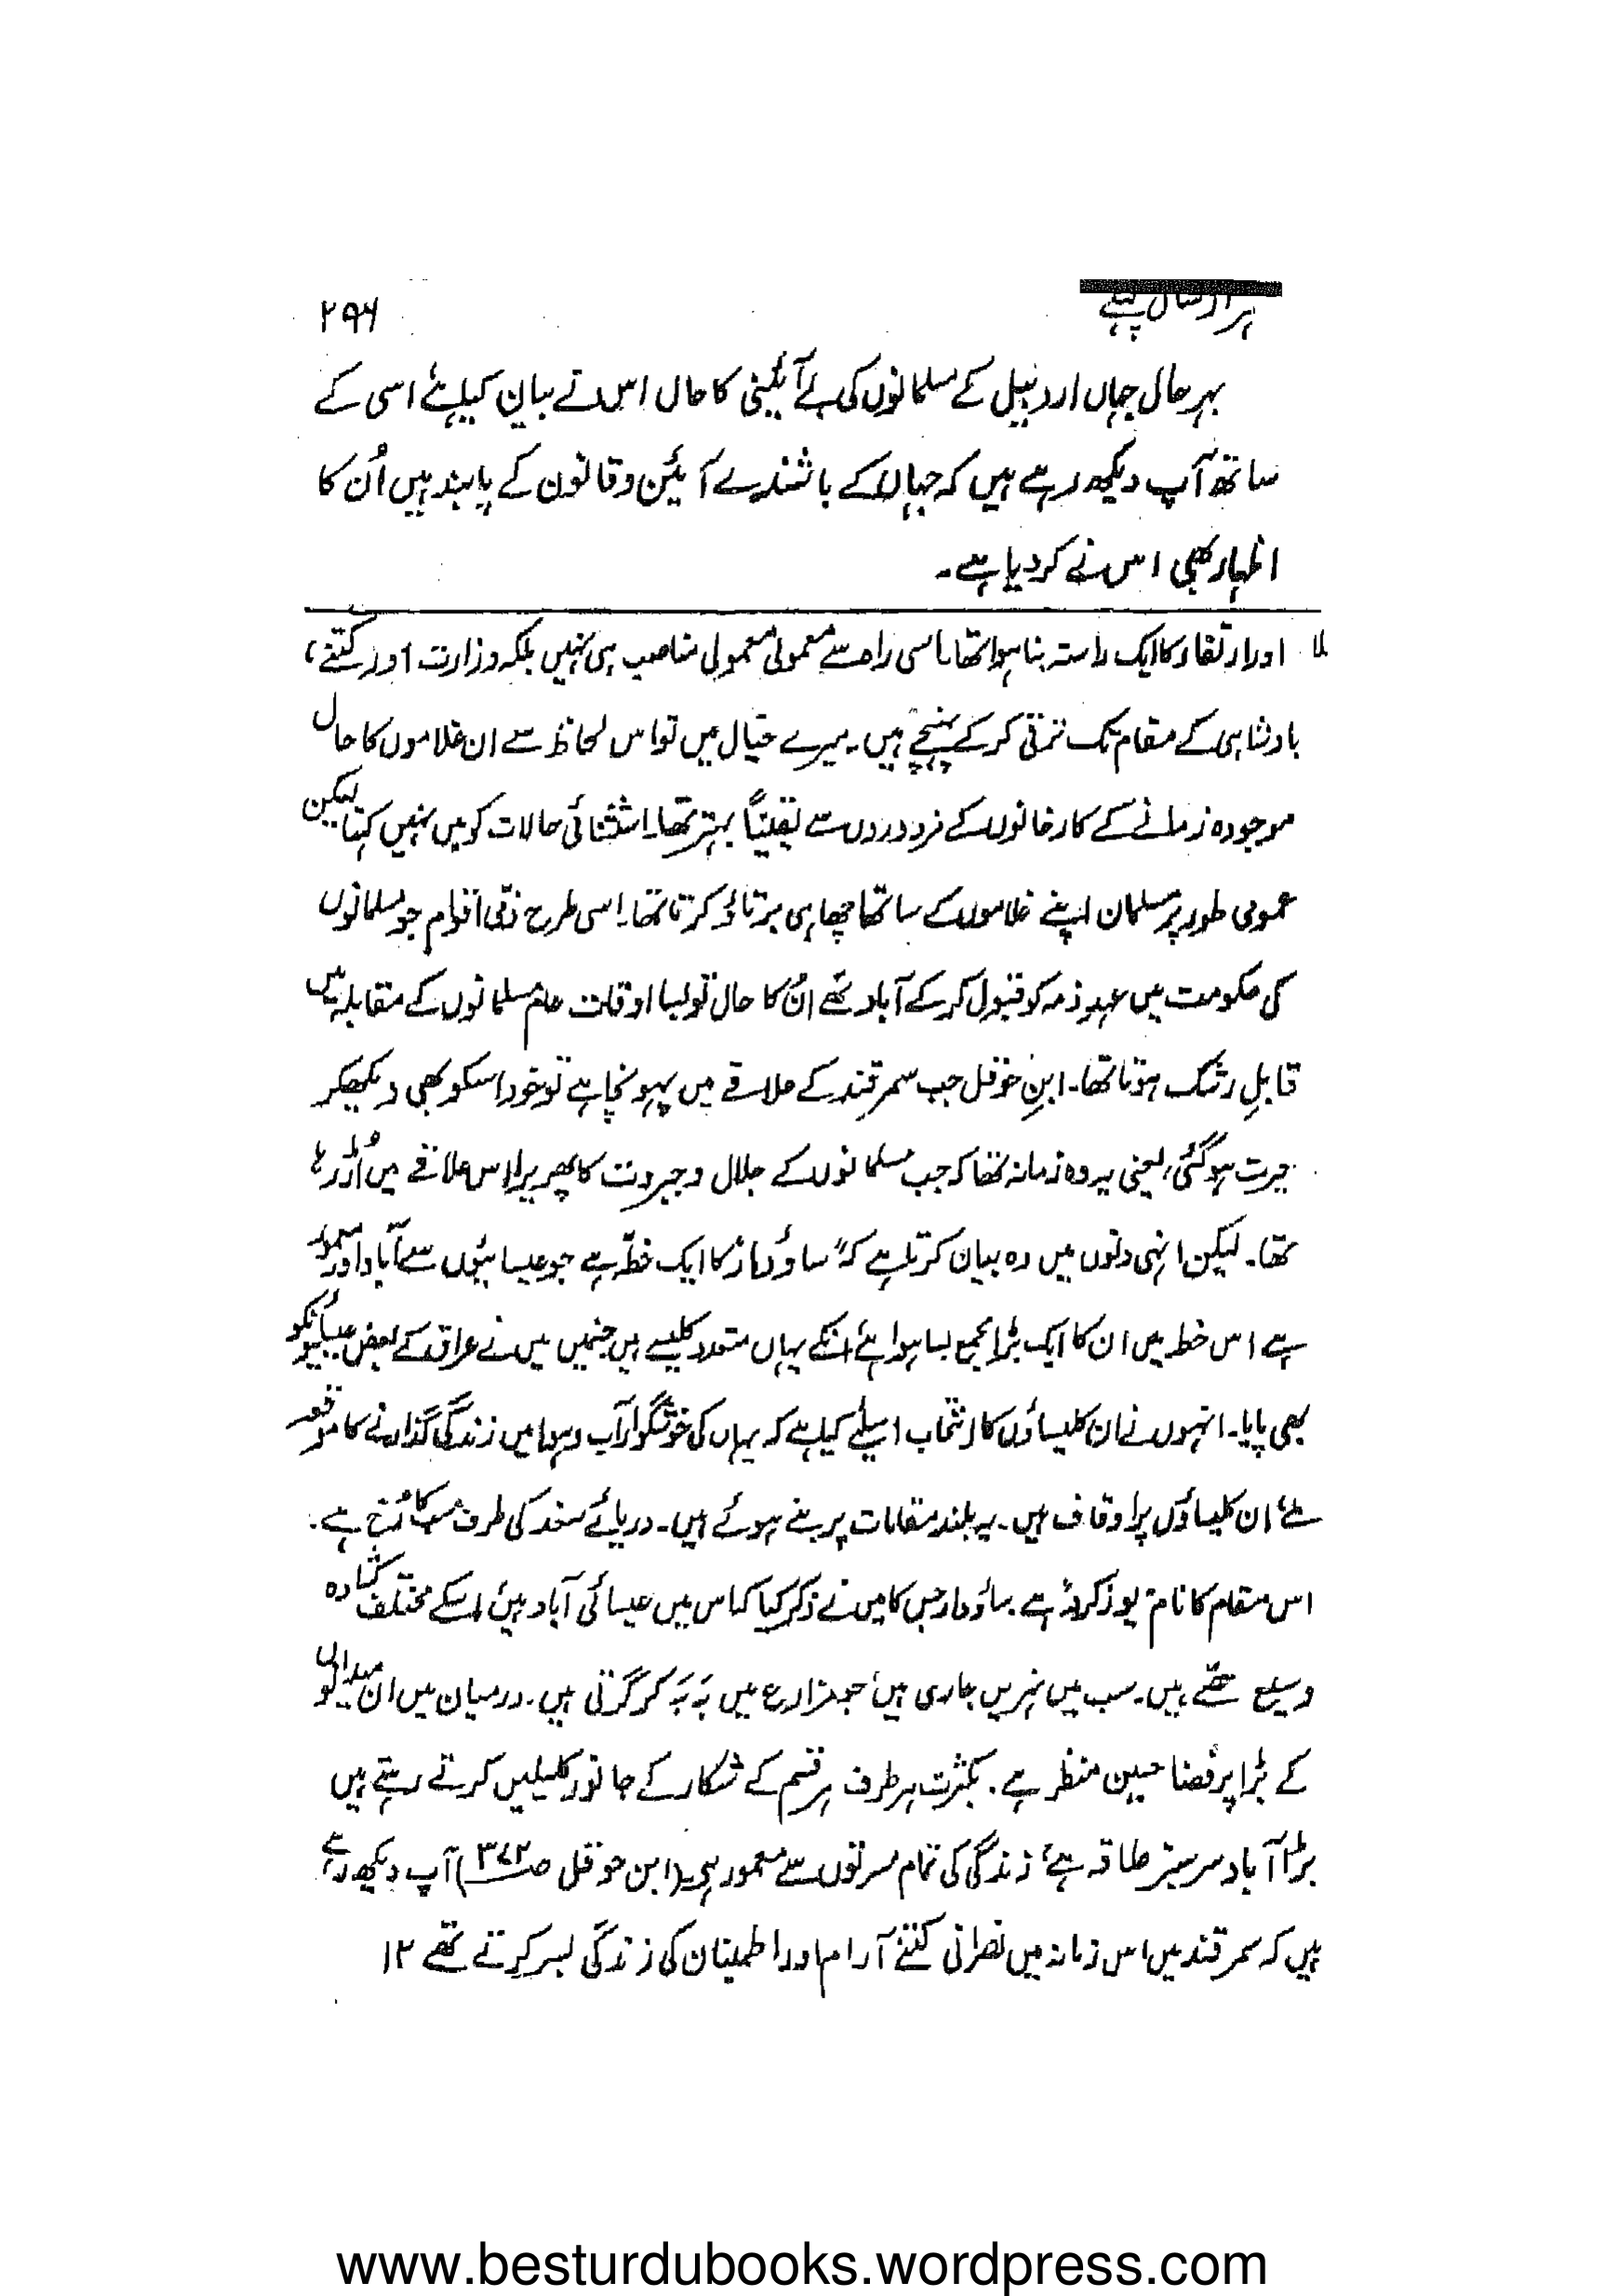 ہزار سال پہلے
۲۹۶
بہرحال جہاں اردبیل کے مسلمانوں کی بے آئینی کا حال اس نے بیان کیا ہے اسی کے
ساتھ آپ دیکھ رہے ہیں کہ جہاں کے باشندے آئین و قانون کے پابند ہیں اُن کا
اظہار بھی اس نے کر دیا ہے۔
اور ارتقاء کا ایک راستہ بنا ہوا تھا۔ اسی راہ سے معمولی معمولی مناصب ہی نہیں بلکہ وزارت اور کتنے،
بادشاہی کے مقام تک ترقی کرکے پہنچے ہیں۔ میرے خیال میں تو اس لحاظ سے ان غلاموں کا حال
موجودہ زمانے کے کارخانوں کے مزدوروں سے یقیناً بہتر تھا۔ استثنائی حالات کو میں نہیں کہتا لیکن
عمومی طور پر مسلمان اپنے غلاموں کے ساتھ اچھا ہی برتاؤ کرتا تھا۔ اسی طرح ذمّی اقوام جو مسلمانوں
کی حکومت میں عہدِ ذمہ کو قبول کرکے آباد تھے اُن کا حال تو بسا اوقات عام مسلمانوں کے مقابلہ میں
قابلِ رشک ہوتا تھا۔ ابنِ حوقل جب سمرقند کے علاقے میں پہونچا ہے تو خود اسکو بھی دیکھکر
حیرت ہوگئی، یعنی یہ وہ زمانہ تھا کہ جب مسلمانوں کے جلال و جبروت کا پھریرا اس علاقے میں اُڑ رہا
تھا۔ لیکن انہی دنوں میں وہ بیان کرتا ہے کہ "ساؤدار کا ایک خطّہ ہے جو عیسائیوں سے آباد اور معمور
ہے اس خطہ میں ان کا ایک بڑا مجمع بسا ہوا ہے، انکے یہاں متعدد کلیسے ہیں جنہیں میں نے عراق کے بعض عیسائیونکو
بھی پایا۔ انہوں نے ان کلیساؤں کا انتخاب اسلئے کیا ہے کہ یہاں کی خوشگوار آب و ہوا میں زندگی گذارنے کا موقعہ
ملے، ان کلیساؤں پر اوقاف ہیں۔ یہ بلند مقامات پر بنے ہوئے ہیں۔ دریائے سغد کی طرف سب کا رُخ ہے۔
اس مقام کا نام یوزکرد ہے۔ ساؤدار جس کا میں نے ذکر کیا کہ اس میں عیسائی آباد ہیں، اسکے مختلف کشادہ
وسیع حصّے ہیں۔ سب میں نہریں جاری ہیں، جو مزارع میں بَہ بَہ کر گرتی ہیں۔ درمیان میں ان میدانوں
کے بڑا پر فضا حسین منظر ہے۔ بکثرت ہر طرف ہر قسم کے شکار کے جانور کلیلیں کرتے رہتے ہیں
بڑا آباد سرسبز علاقہ ہے، زندگی کی تمام مسرتوں سے معمور ہی۔ (ابن حوقل ص۳۷۲) آپ دیکھ رہے
ہیں کہ سمرقند میں اس زمانہ میں نصرانی کتنے آرام اور اطمینان کی زندگی بسر کرتے تھے ۱۲
www.besturdubooks.wordpress.com